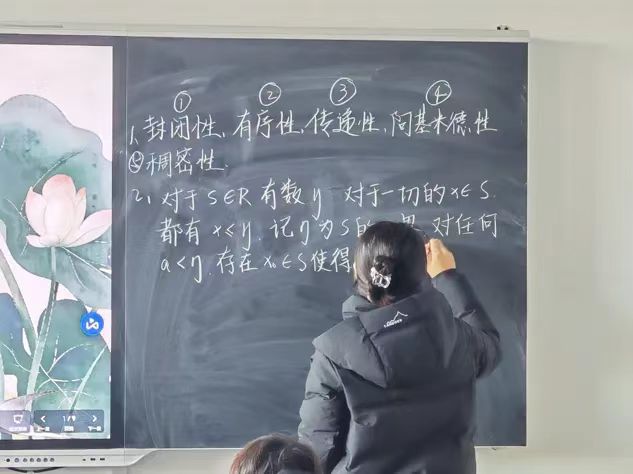 ① ② ③ ④
1、封闭性、有序性、传递性、阿基米德性
⑤稠密性.
2、对于S∈R 有数η 对于一切的x∈S.
都有x<η.记η为S的 界 对任何
a<η.存在x₀∈S使得
1/9